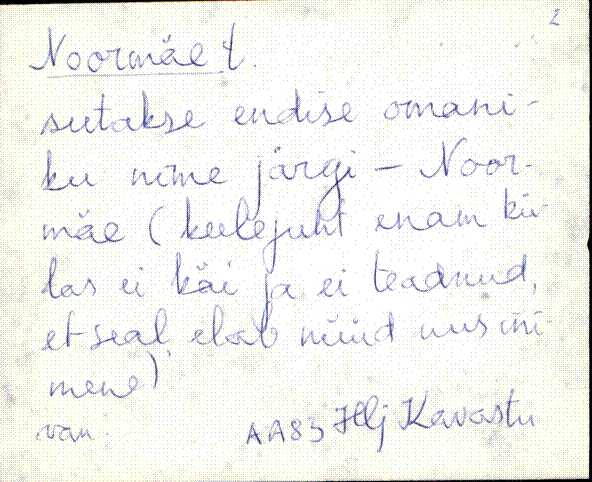 2
Noormäe t.
sutakse endise omani-
ku nime järgi – Noor-
mäe (keelejuht enam kü-
las ei käi ja ei teadnud,
et seal elab nüüd uus ini-
mene)
van.
AA83 Hlj Kavastu